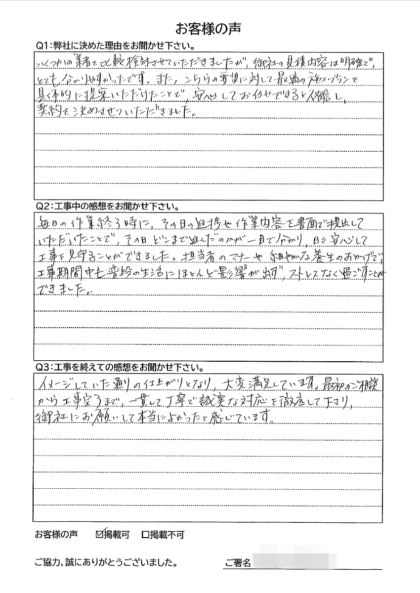 お客様の声
Q1:弊社に決めた理由をお聞かせ下さい。
いくつかの業者で比較検討させていただきましたが、御社の見積内容は明確で、
とても分かりやすかったです。また、こちらの要望に対して最適の施工プランを
具体的に提案いただけたことで、安心してお任せできると確信し、
契約を決めさせていただきました。
Q2:工事中の感想をお聞かせ下さい。
毎日の作業終了時に、その日の進捗や作業内容を書面で提出して
いただいたことで、その日どこまで進んだのかが一目で分かり、日々安心して
工事を見守ることができました。担当者のマナーや細やかな養生のおかげで、
工事期間中も普段の生活にほとんど影響が出ず、ストレスなく過ごすことが
できました。
Q3:工事を終えての感想をお聞かせ下さい。
イメージしていた通りの仕上がりとなり、大変満足しています。最初のご相談
から工事完了まで、一貫して丁寧で誠実な対応を徹底して下さり、
御社にお願いして本当によかったと感じています。
お客様の声 ☑掲載可 ☐掲載不可
ご協力、誠にありがとうございました。 ご署名